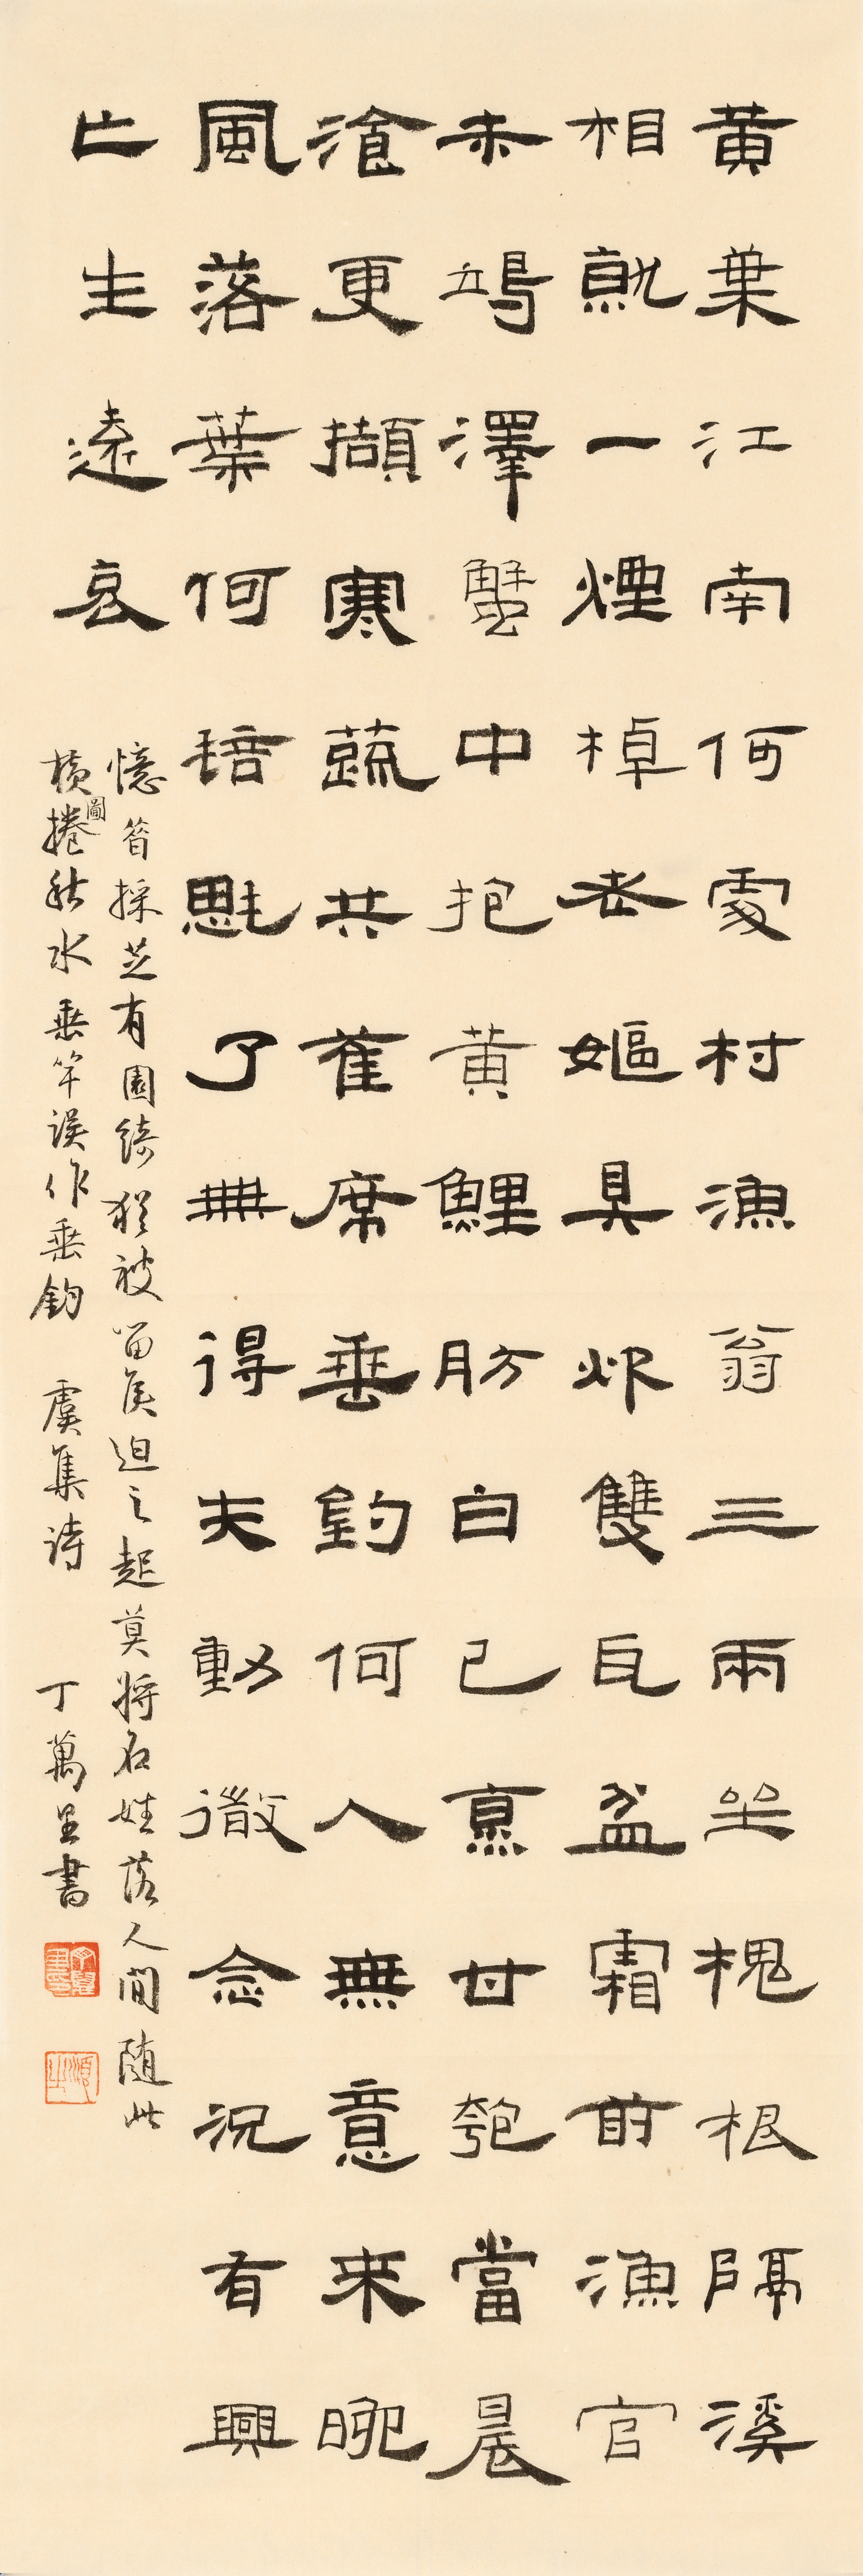 黄葉江南何處村漁翁三兩坐槐根隔溪
相就一煙棹老嫗具炊雙瓦盆霜前漁官
未竭澤蟹中抱黄鯉肪白已烹甘瓠當晨
湌更擷寒蔬共萑席垂釣何人無意來晚
風落葉何毰毸了無得失動微念況有興
亡生遠哀
憶昔採芝有園綺猶被留侯迫之起莫將名姓落人間隨此
橫圖捲秋水 垂竿誤作垂釣 虞集詩 丁萬里書